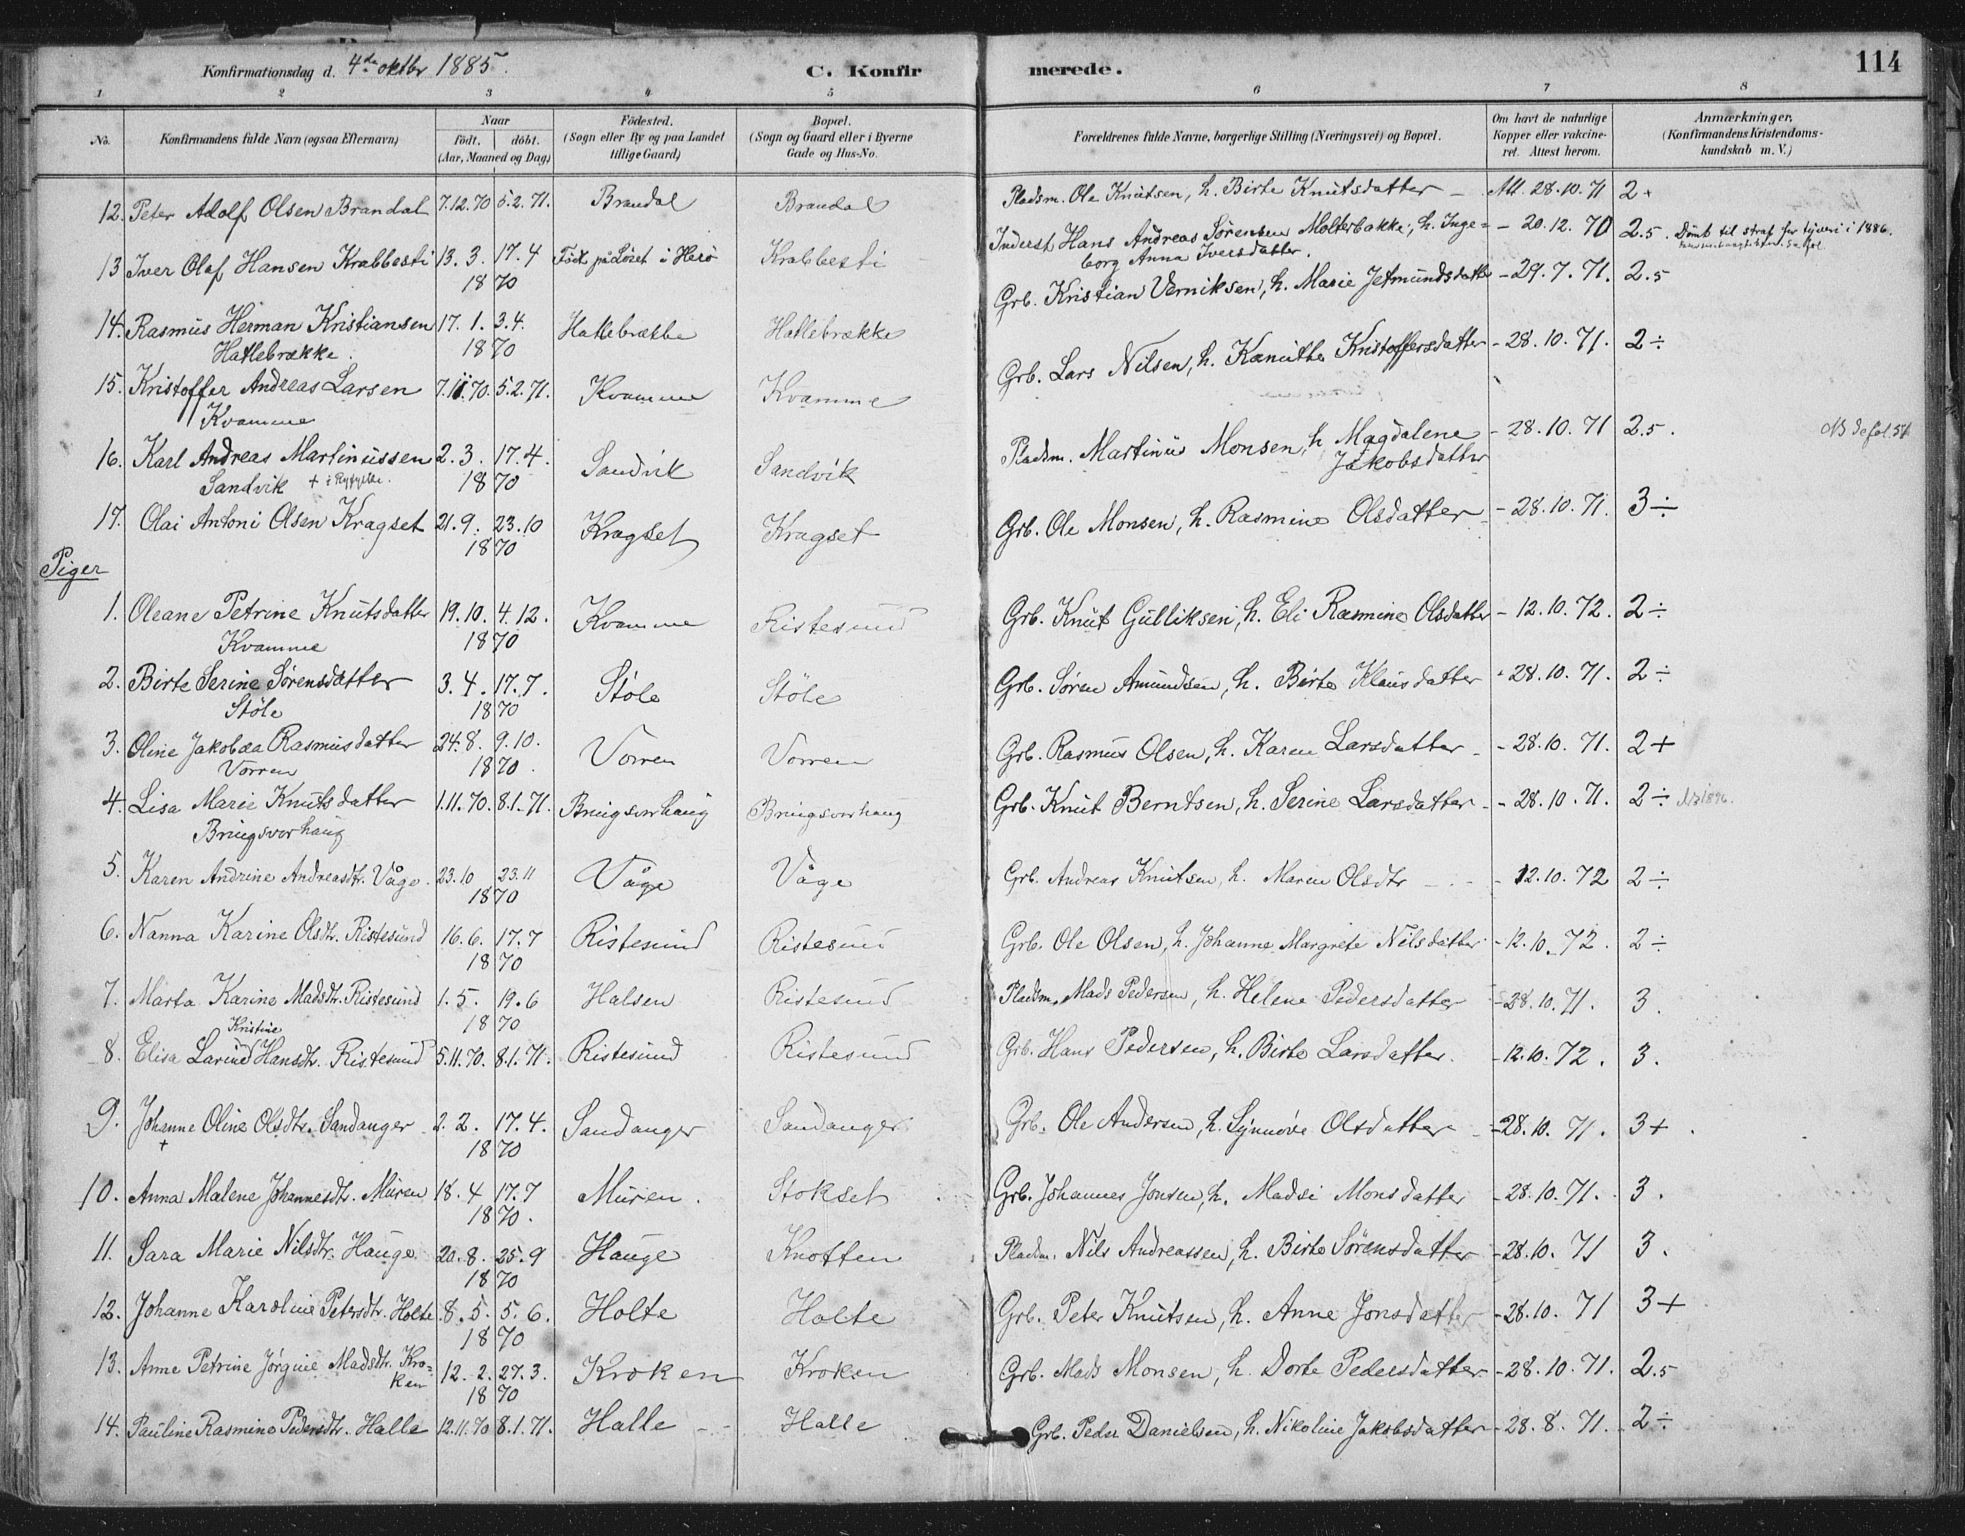 Konfirmationsdag d. 4de oktbr 1885.
C. Konfirmerede.
114
1 2 3 4 5 6 7 8
No.
Konfirmandens fulde Navn (ogsaa Efternavn)
Naar
födt. döbt.
(Aar, Maaned og Dag)
Födested.
(Sogn eller By og paa Landet
tillige Gaard)
Bopæl.
(Sogn og Gaard eller i Byerne
Gade og Hus-No.
Forældrenes fulde Navne, borgerlige Stilling (Næringsvei) og Bopæl.
Om havt de naturlige
Kopper eller vakcine-
ret. Attest herom.
Anmærkninger,
(Konfirmandens Kristendoms-
kundskab m. V.)
12. Peter Adolf Olsen Brandal 7.12.70 5.2.71. Brandal Brandal Pladsm. Ole Knutsen, h. Birte Knutsdatter - Att. 28.10.71 2+
13 Iver Olaf Hansen Krabbesti 13.3. 17.4 Født på Løset i Herö Krabbesti Inderst Hans Andreas Sørensen Molterbakke, h. Inge= - 20.12.70 2.5. Dömt til straf for tyveri i 1886.
1870 borg Anna Iversdatter.
14. Rasmus Herman Kristiansen 17.1. 3.4. Hatlebrække Hatlebrække Grb. Kristian Verniksen, h. Marie Jetmundsdatter - 29.7.71. 2.5
Hatlebrække. 1870
15. Kristoffer Andreas Larsen 7.11.70. 5.2.71. Kvamme Kvamme Grb. Lars Nilsen, h. Kanutte Kristoffersdatter - 28.10.71. 2÷
Kvamme
16. Karl Andreas Martinussen 2.3. 17.4. Sandvik Sandvik Pladsm. Martinus Monsen, h. Magdalene - 28.10.71 2.5.
Sandvik + i 1870 Jakobsdatter
17. Olai Antoni Olsen Kragset 21.9. 23.10 Kragset Kragset Grb. Ole Monsen, h. Rasmine Olsdatter - 28.10.71. 3÷
1870
Piger
1. Oleane Petrine Knutsdatter 19.10. 4.12. Kvamme Ristesund Grb. Knut Gulliksen, h. Eli Rasmine Olsdatter - 12.10.72. 2÷
Kvamme 1870
2. Birte Serine Sørensdatter 3.4. 17.7. Støle Støle Grb. Søren Amundsen, h. Birte Klausdatter - 28.10.71. 2÷
Støle 1870
3. Oline Jakobæa Rasmusdatter 24.8. 9.10. Vorren Vorren Grb. Rasmus Olsen, h. Karen Larsdatter - 28.10.71. 2+
Vorren 1870.
4. Lisa Marie Knutsdatter 1.11.70. 8.1.71. Bringsvorhaug Bringsvorhaug Grb. Knut Berntsen, h. Serine Larsdatter - 28.10.71. 2÷
Bringsvorhaug
5. Karen Andrine Andreasdtr. Våge. 23.10 23.11 Våge Våge Grb. Andreas Knutsen, h. Maren Olsdtr - 12.10.72 2÷
1870
6. Nanna Karine Olsdtr. Ristesund 16.6. 17.7 Ristesund Ristesund Grb. Ole Olsen, h. Johanne Margrete Nilsdatter - 12.10.72. 2÷
1870
7. Marta Karine Madsdtr. Ristesund 1.5. 19.6 Halsen Ristesund Pladsm. Mads Pedersen, h. Helene Pedersdatter - 28.10.71. 3.
1870
Kristine
8. Elisa Larine Hansdtr. Ristesund 5.11.70. 8.1.71. Ristesund Ristesund Grb. Hans Pedersen, h. Birte Larsdatter. - 12.10.72. 3.
9. Johanne Oline Olsdtr. Sandanger 2.2. 17.4. Sandanger Sandanger Grb. Ole Andersen, h. Synnøve Olsdatter - 28.10.71. 3+
+ 1870
10. Anna Malene Johannesdtr. Muren 18.4 17.7 Muren. Stokset Grb. Johannes Jonsen, h. Madsi Monsdatter - 28.10.71. 3.
1870.
11. Sara Marie Nilsdtr. Hauge. 20.8. 25.9 Hauge Knotten Pladsm. Nils Andreassen, h. Birte Sørensdatter - 28.10.71 3.
1870
12. Johanne Karoline Petersdtr. Holte 8.5. 5.6. Holte Holte Grb. Peter Knutsen, h. Anne Jonsdatter - 28.10.71 3+
1870
13. Anne Petrine Jørgine Madsdtr. Kro= 12.2. 27.3. Kroken Kroken Grb. Mads Monsen, h. Dorte Pedersdatter - 28.10.71. 2.5
ken 1870
14. Pauline Rasmine Pedersdtr. Halle 12.11.70 8.1.71. Halle Halle Grb. Peder Danielsen, h. Nikoline Jakobsdatter - 28.8.71. 2÷